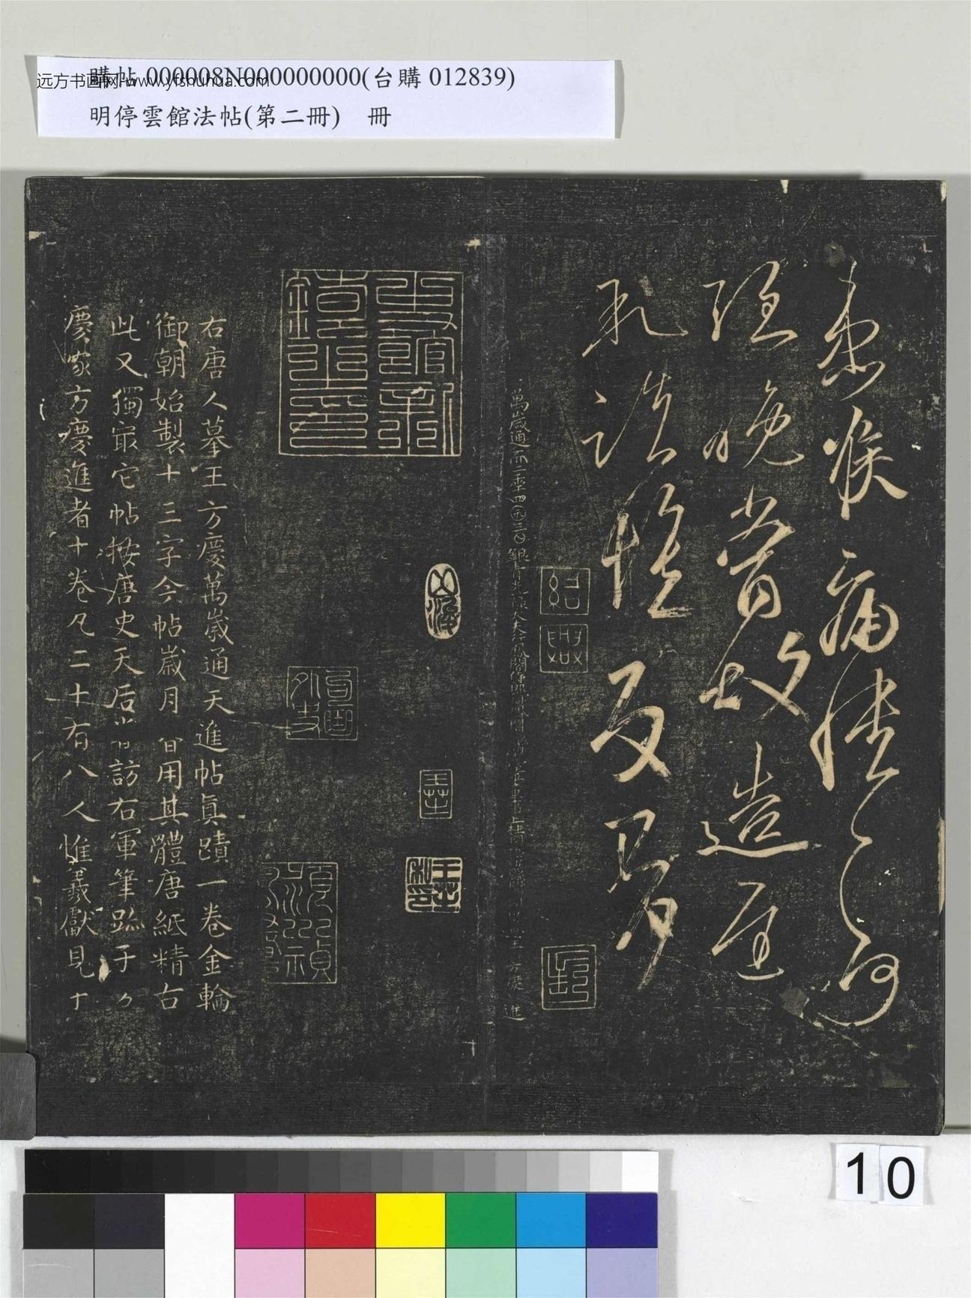 购帖 000008N000000000(台購 012839)
远方书画网 www.yfshuhua.com
明停雲館法帖(第二冊) 冊
患喉痛憒〻何
晚當故造遲
諸惟
萬歲通天二年四月三日銀青光祿大夫 方慶進
紹興
右唐人摹王方慶萬歲通天進帖真蹟一卷金輪
御朝始製十三字今帖歲月皆用其體唐紙精古
此又獨冣它帖按唐史天后嘗訪右軍筆跡于方
慶家方慶進者十卷凡二十有八人惟羲獻見于
10